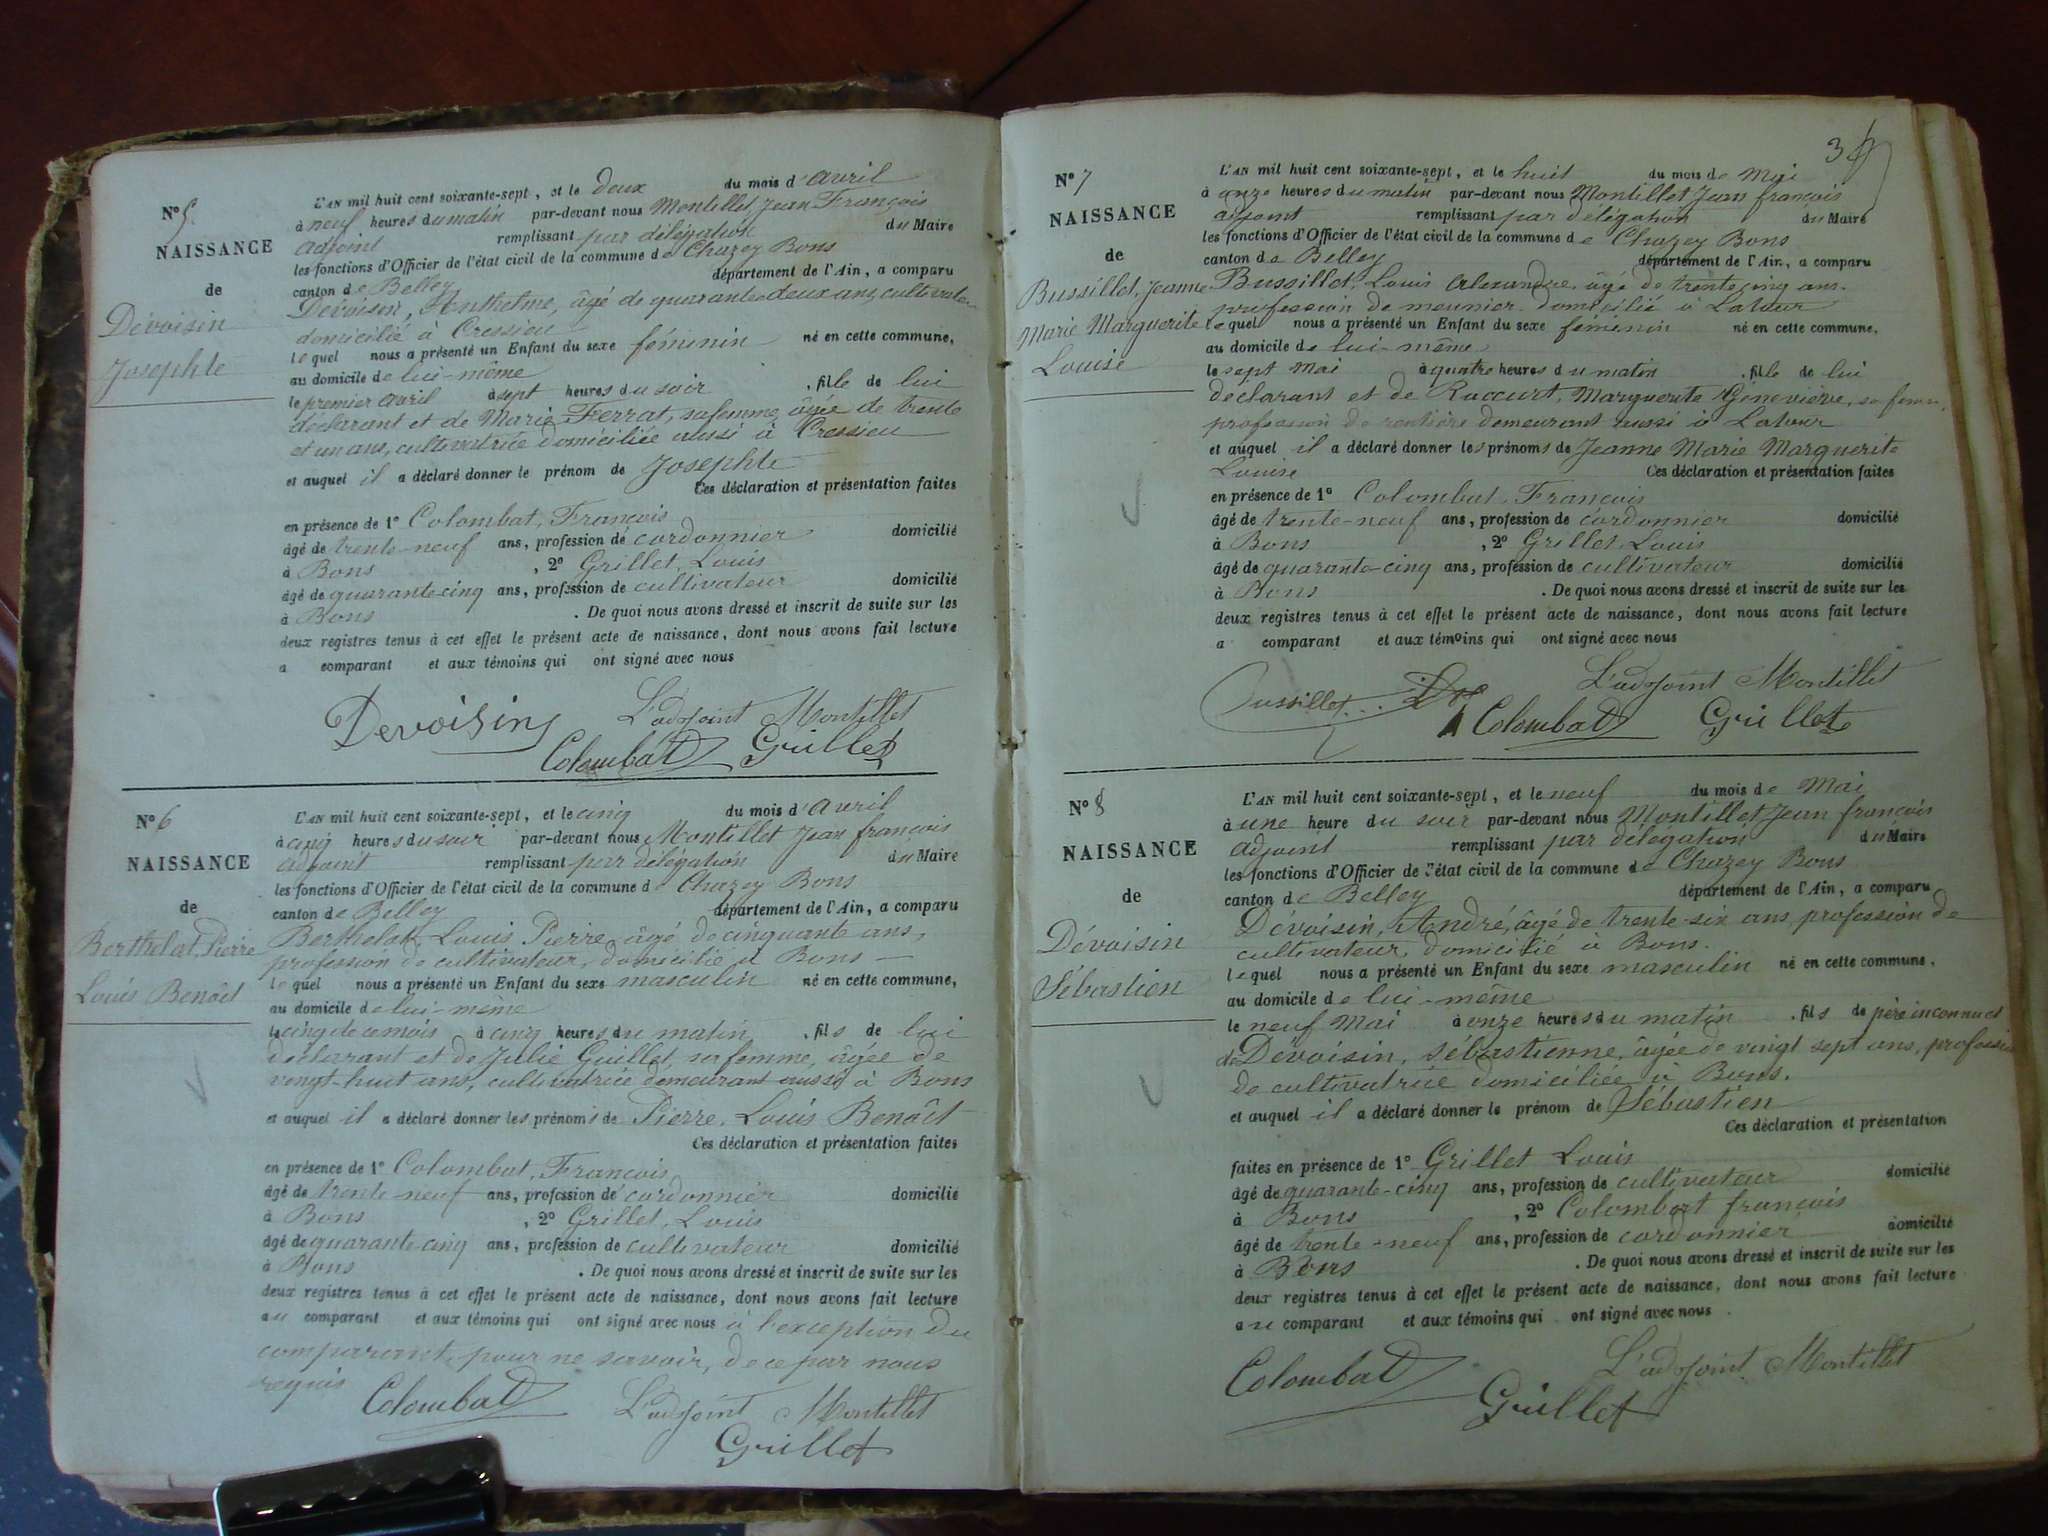 N° 5
NAISSANCE
de
Dévoisin
Josephte
L'AN mil huit cent soixante-sept, et le deux du mois d'avril
à neuf heures du matin par-devant nous Montillet Jean François
adjoint remplissant par délégation du Maire
les fonctions d'Officier de l'état civil de la commune de Chazey Bons
canton de Belley département de l'Ain, a comparu
Dévoisin, Anthelme, âgé de quarante deux ans, cultivateur
domicilié à Cressieu
lequel nous a présenté un Enfant du sexe féminin né en cette commune,
au domicile de lui-même
le premier avril à sept heures du soir, fille de lui
déclarant et de Marie Ferrat, sa femme, âgée de trente
et un ans, cultivatrice domiciliée aussi à Cressieu
et auquel il a déclaré donner le prénom de Josephte
Ces déclaration et présentation faites
en présence de 1° Colombat, François
âgé de trente-neuf ans, profession de cordonnier domicilié
à Bons, 2° Grillet, Louis
âgé de quarante-cinq ans, profession de cultivateur domicilié
à Bons. De quoi nous avons dressé et inscrit de suite sur les
deux registres tenus à cet effet le présent acte de naissance, dont nous avons fait lecture
a comparant et aux témoins qui ont signé avec nous
Devoisin L'adjoint Montillet
Colombat Grillet
N° 6
NAISSANCE
de
Berthelat, Pierre
Louis Benoît
L'AN mil huit cent soixante-sept, et le cinq du mois d'avril
à cinq heures du soir par-devant nous Montillet Jean françois
adjoint remplissant par délégation du Maire
les fonctions d'Officier de l'état civil de la commune de Chazey Bons
canton de Belley département de l'Ain, a comparu
Berthelat, Louis Pierre, âgé de cinquante ans,
profession de cultivateur, domicilié à Bons
lequel nous a présenté un Enfant du sexe masculin né en cette commune,
au domicile de lui-même
le cinq de ce mois à cinq heures du matin, fils de lui
déclarant et de Julie Guillet sa femme, âgée de
vingt-huit ans, cultivatrice demeurant aussi à Bons
et auquel il a déclaré donner les prénoms de Pierre, Louis Benoît
Ces déclaration et présentation faites
en présence de 1° Colombat, François
âgé de trente-neuf ans, profession de cordonnier domicilié
à Bons, 2° Grillet, Louis
âgé de quarante-cinq ans, profession de cultivateur domicilié
à Bons. De quoi nous avons dressé et inscrit de suite sur les
deux registres tenus à cet effet le présent acte de naissance, dont nous avons fait lecture
au comparant et aux témoins qui ont signé avec nous à l'exception du
comparant, pour ne savoir, de ce par nous
requis
Colombat L'adjoint Montillet
Grillet
3
N° 7
NAISSANCE
de
Bussillet, Jeanne
Marie Marguerite
Louise
L'AN mil huit cent soixante-sept, et le huit du mois de Mai
à onze heures du matin par-devant nous Montillet Jean françois
adjoint remplissant par délégation du Maire
les fonctions d'Officier de l'état civil de la commune de Chazey Bons
canton de Belley département de l'Ain, a comparu
Bussillet, Louis Alexandre, âgé de trente cinq ans.
profession de meunier domicilié à Latour
lequel nous a présenté un Enfant du sexe féminin né en cette commune,
au domicile de lui-même
le sept mai à quatre heures du matin, fille de lui
déclarant et de Raccurt, Marguerite Géneviève, sa femme,
profession de rentière demeurant aussi à Latour
et auquel il a déclaré donner les prénoms de Jeanne Marie Marguerite
Louise Ces déclaration et présentation faites
en présence de 1° Colombat, François
âgé de trente-neuf ans, profession de cordonnier domicilié
à Bons, 2° Grillet, Louis
âgé de quarante-cinq ans, profession de cultivateur domicilié
à Bons. De quoi nous avons dressé et inscrit de suite sur les
deux registres tenus à cet effet le présent acte de naissance, dont nous avons fait lecture
a comparant et aux témoins qui ont signé avec nous
Bussillet L'adjoint Montillet
Colombat Grillet
N° 8
NAISSANCE
de
Dévoisin
Sébastien
L'AN mil huit cent soixante-sept, et le neuf du mois de Mai
à une heure du soir par-devant nous Montillet Jean françois
adjoint remplissant par délégation du Maire
les fonctions d'Officier de l'état civil de la commune de Chazey Bons
canton de Belley département de l'Ain, a comparu
Dévoisin, André, âgé de trente-six ans, profession de
cultivateur, domicilié à Bons.
lequel nous a présenté un Enfant du sexe masculin né en cette commune,
au domicile de lui-même
le neuf Mai à onze heures du matin, fils de père inconnu et
de Dévoisin, Sébastienne, âgée de vingt sept ans, profession
de cultivatrice domiciliée à Bons.
et auquel il a déclaré donner le prénom de Sébastien
Ces déclaration et présentation
faites en présence de 1° Grillet Louis
âgé de quarante-cinq ans, profession de cultivateur domicilié
à Bons, 2° Colombat françois
âgé de trente-neuf ans, profession de cordonnier domicilié
à Bons. De quoi nous avons dressé et inscrit de suite sur les
deux registres tenus à cet effet le présent acte de naissance, dont nous avons fait lecture
au comparant et aux témoins qui ont signé avec nous.
Colombat L'adjoint Montillet
Grillet